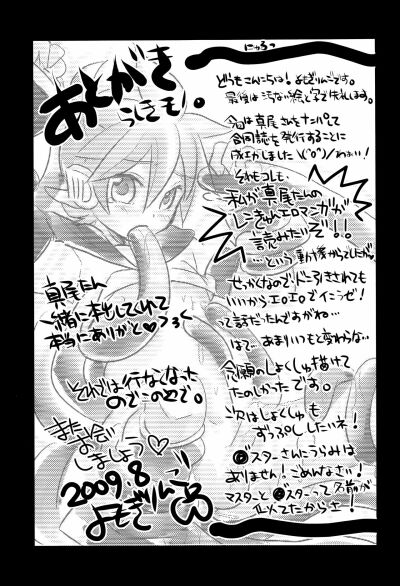 にゃろっ
あとがき
うしきも!。
どうもこんにちは!よもぎりんごです。
最後は汚ない絵と字で失礼します。
今回は真尾さんをナンパして
合同誌を発行することに
成功しました\(^o^)/わぁい!
それもコレも
私が真尾たんの
レンきゅんエロマンガが
読みたいぞ!!
…という動機からでしたが
せっかくなので、ドン引きされても
いいからエロエロでイこうぜ!
って話だったんですがね…
はて、あまりいつもと変わらな…
念願のしょくしゅ描けて
たのしかったです。
次はしょくしゅも
ずっぷししたいネ!
スターさんにうらみは
ありません!ごめんなさい!
マスターと スターって名前が
似てたからさ!
真尾たん
一緒に本出してくれて
本当にありがと♡
それでは行なくなった
のでこの辺で。
またお会い
しましょう♡
2009.8
よもぎりんご